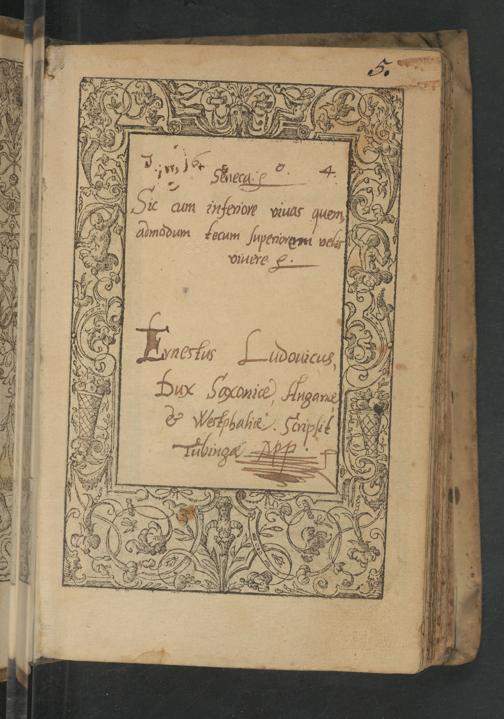 5.
1 6 0 4.
Seneca.
Sic cum inferiore viuas quem,
admodum tecum superiorem velis
viuere
Ernestus Ludouicus,
Dux Saxoniæ, Angariæ
& Westphaliæ. Scripsit
Tubingæ